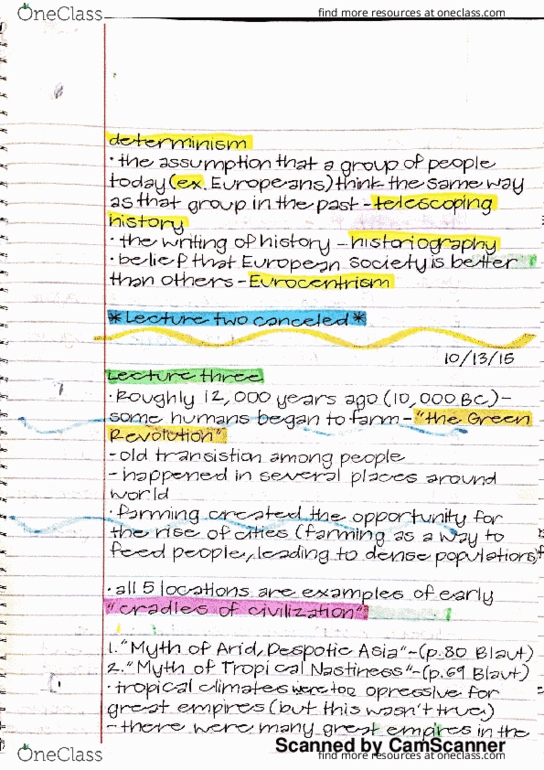 OneClass
find more resources at oneclass.com
determinism
• the assumption that a group of people
today (ex. Europeans) think the same way
as that group in the past - telescoping
history
• the writing of history - historiography
• belief that European society is better
than others - Eurocentrism
*Lecture two canceled*
10/13/15
Lecture three
• Roughly 12,000 years ago (10,000 BC) -
some humans began to farm - "the Green
Revolution"
- old transistion among people
- happened in several places around
world
• farming created the opportunity for
the rise of cities (farming as a way to
feed people, leading to dense populations)
• all 5 locations are examples of early
"cradles of civilization"
1. "Myth of Arid, Despotic Asia" - (p.80 Blaut)
2. "Myth of Tropical Nastiness" - (p.69 Blaut)
• tropical climates were too opressive for
great empires (but this wasn't true)
- there were many great empires in the
Scanned by CamScanner
OneClass
find more resources at oneclass.com